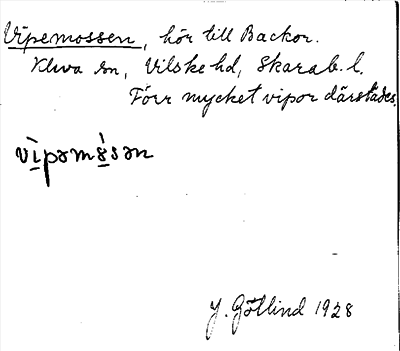 Vipemossen, hör till Backor.
Kleva sn, Vilske hd, Skarab. l.
Förr mycket vipor därstädes.
vìpəmòsən
J. Götlind 1928